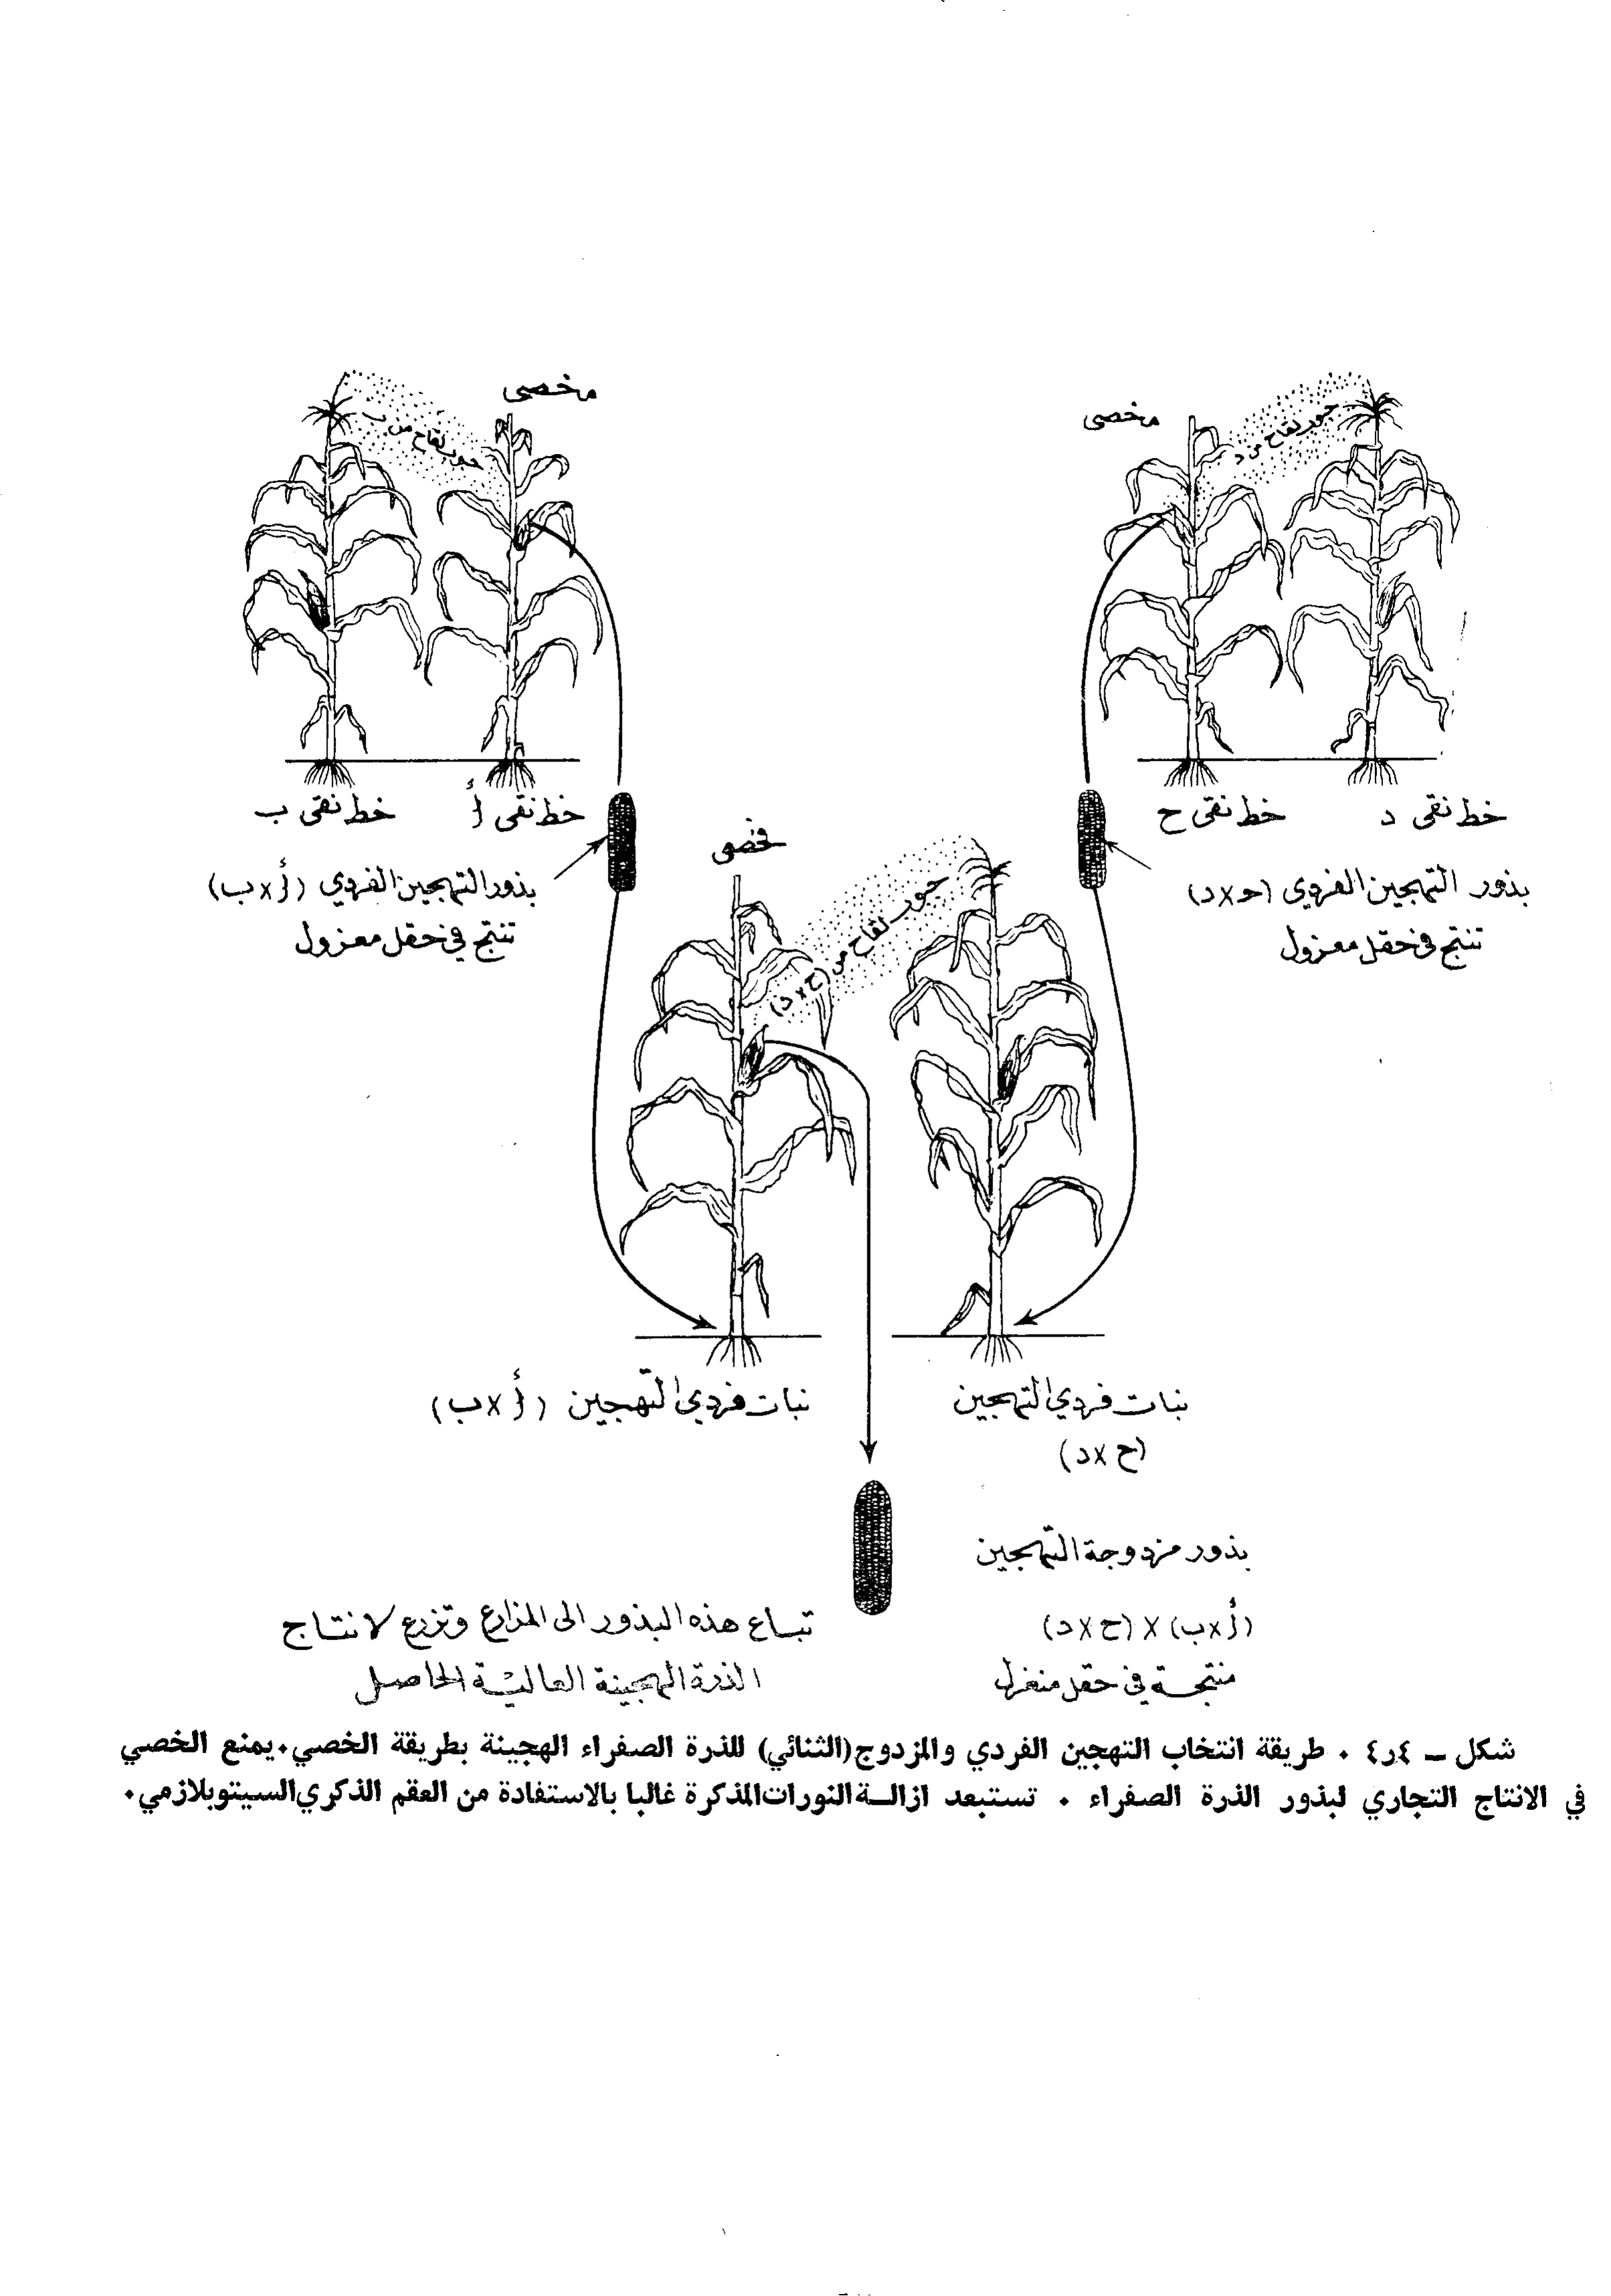 مخصى
مخصى
حبوب لقاح من ب
حبوب لقاح من د
خط نقي ب
خط نقي أ
خط نقي ح
خط نقي د
بذور التهجين الفردي (أ x ب)
تنتج في حقل معزول
بذور التهجين الفردي (ح x د)
تنتج في حقل معزول
مخصى
حبوب لقاح من (ح x د)
نبات فردي التهجين (أ x ب)
نبات فردي التهجين
(ح x د)
بذور مزدوجة التهجين
(أ x ب) x (ح x د)
منتجة في حقل منعزل
تباع هذه البذور الى المزارع وتزرع لانتاج
الذرة الهجينة العالية الحاصل
شكل ـ ٤ر٤ . طريقة انتخاب التهجين الفردي والمزدوج (الثنائي) للذرة الصفراء الهجينة بطريقة الخصي. يمنع الخصي
في الانتاج التجاري لبذور الذرة الصفراء . تستبعد ازالـة النورات المذكرة غالبا بالاستفادة من العقم الذكري السيتوبلازمي.